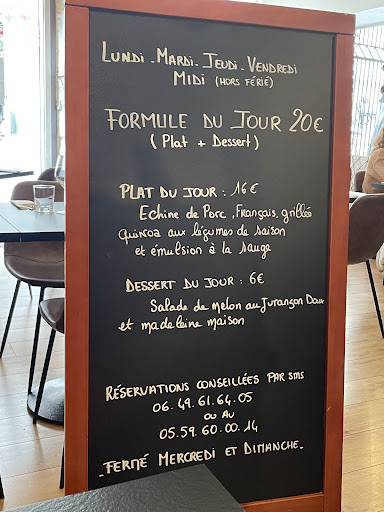 LUNDI - MARDI - JEUDI - VENDREDI
MIDI (HORS FÉRIÉ)
FORMULE DU JOUR 20€
( Plat + Dessert )
PLAT DU JOUR : 16€
Echine de Porc, Français, grillée
quinoa aux légumes de saison
et émulsion à la sauge
DESSERT DU JOUR : 6€
Salade de melon au Jurançon Doux
et madeleine maison
RÉSERVATIONS CONSEILLÉES PAR SMS
06.49.61.64.05
OU AU
05.59.60.00.14
- FERMÉ MERCREDI ET DIMANCHE -